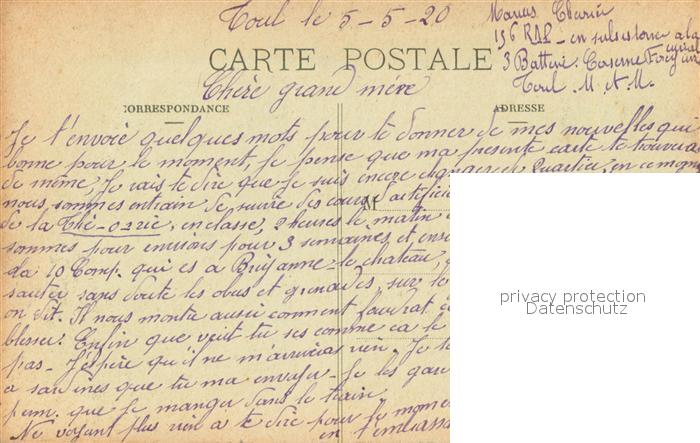 Toul le 5-5-20
Marius
156 RAP - en subsistance a la
3 Batterie. Caserne
Toul. M. et M.
CARTE POSTALE
Chère grand mère
CORRESPONDANCE
ADRESSE
Je t'envoie quelques mots pour te donner de mes nouvelles qui
bonne pour le moment, Je pense que ma présente carte te trouvera
de même, Je vais te dire que Je suis encore changer de Quartier, en ce mom
nous, sommes entrain de suivre des cours d'artificie
M
de la Thé-orrie, en classe, 2 heures le matin
sommes pour environs pour 3 semaines, et, ens
da 10 Comp. qui es a le chateau,
sauter sans doute les obus et grenades, sur, le
on dit. Il nous montre aussi comment
blesser. Enfin que veut tu ses comme ca le
pas - J'éspère qu'il ne m'arrivera rien. Je te
a sardines que tu ma envoyer - Je les gar
perm. que Je manger dans le train.
Ne voyant plus rien a te dire pour le moment
en t'embrass
privacy protection
Datenschutz